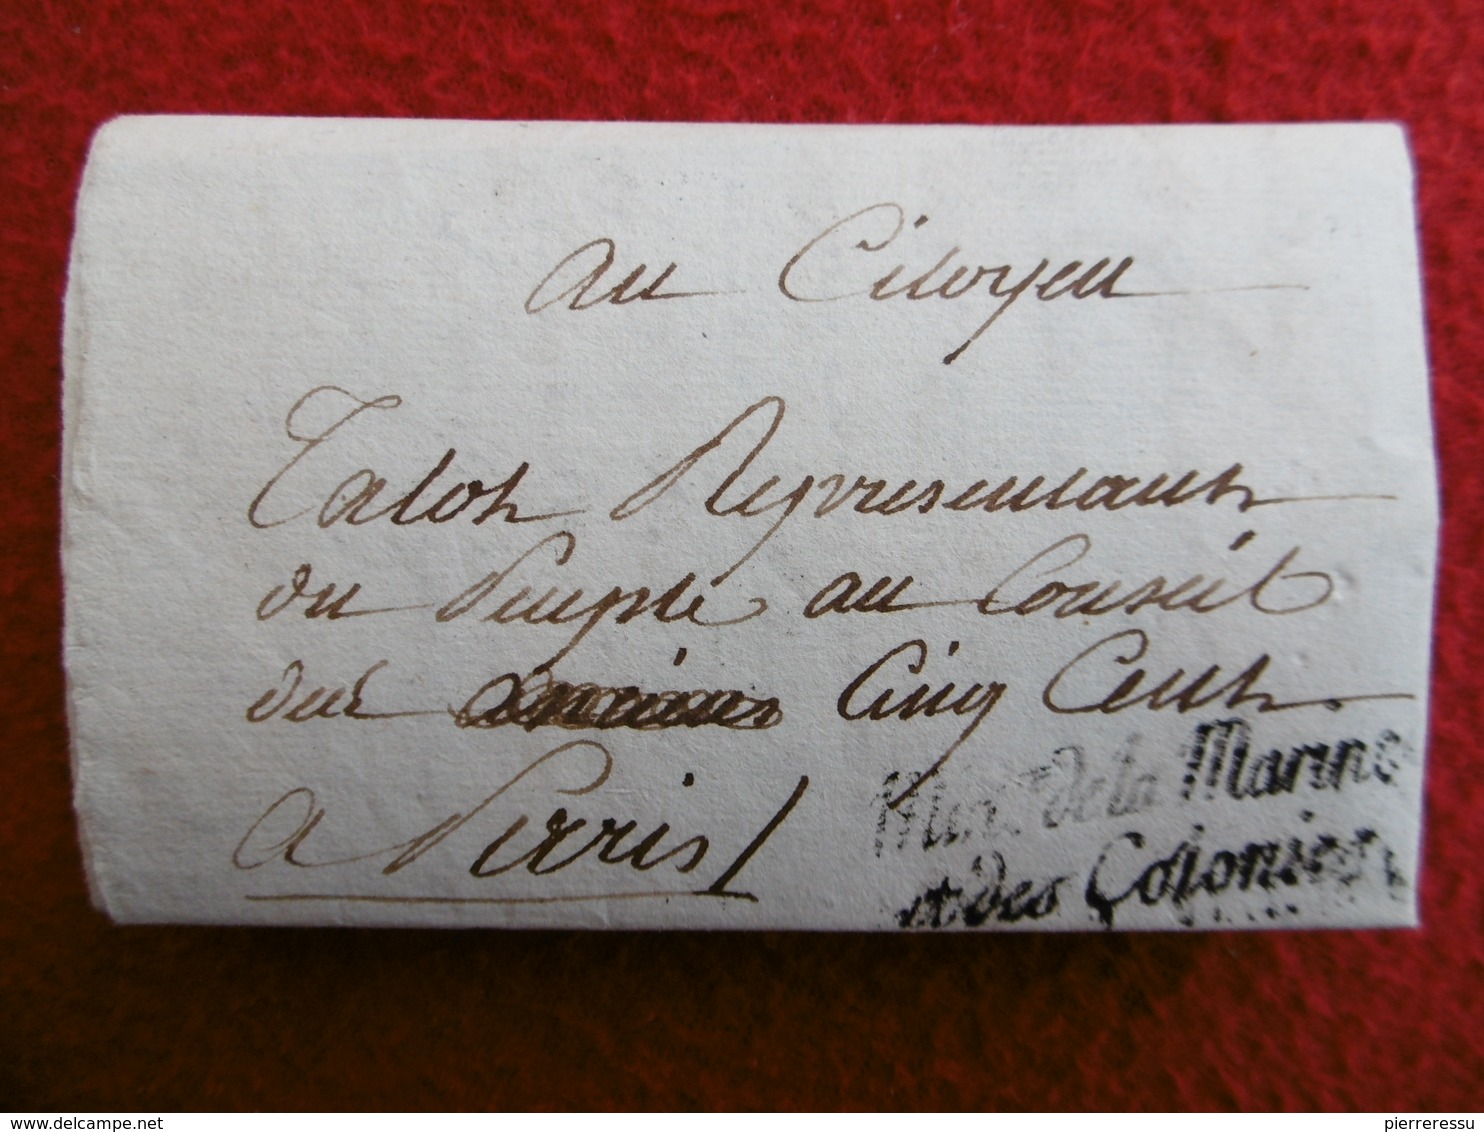 au Citoyen
Talot Representant
du Peuple au Conseil
des anciens Cinq Cent
a Paris
Min. de la Marine
et des Colonies
www.delcampe.net
pierreressu